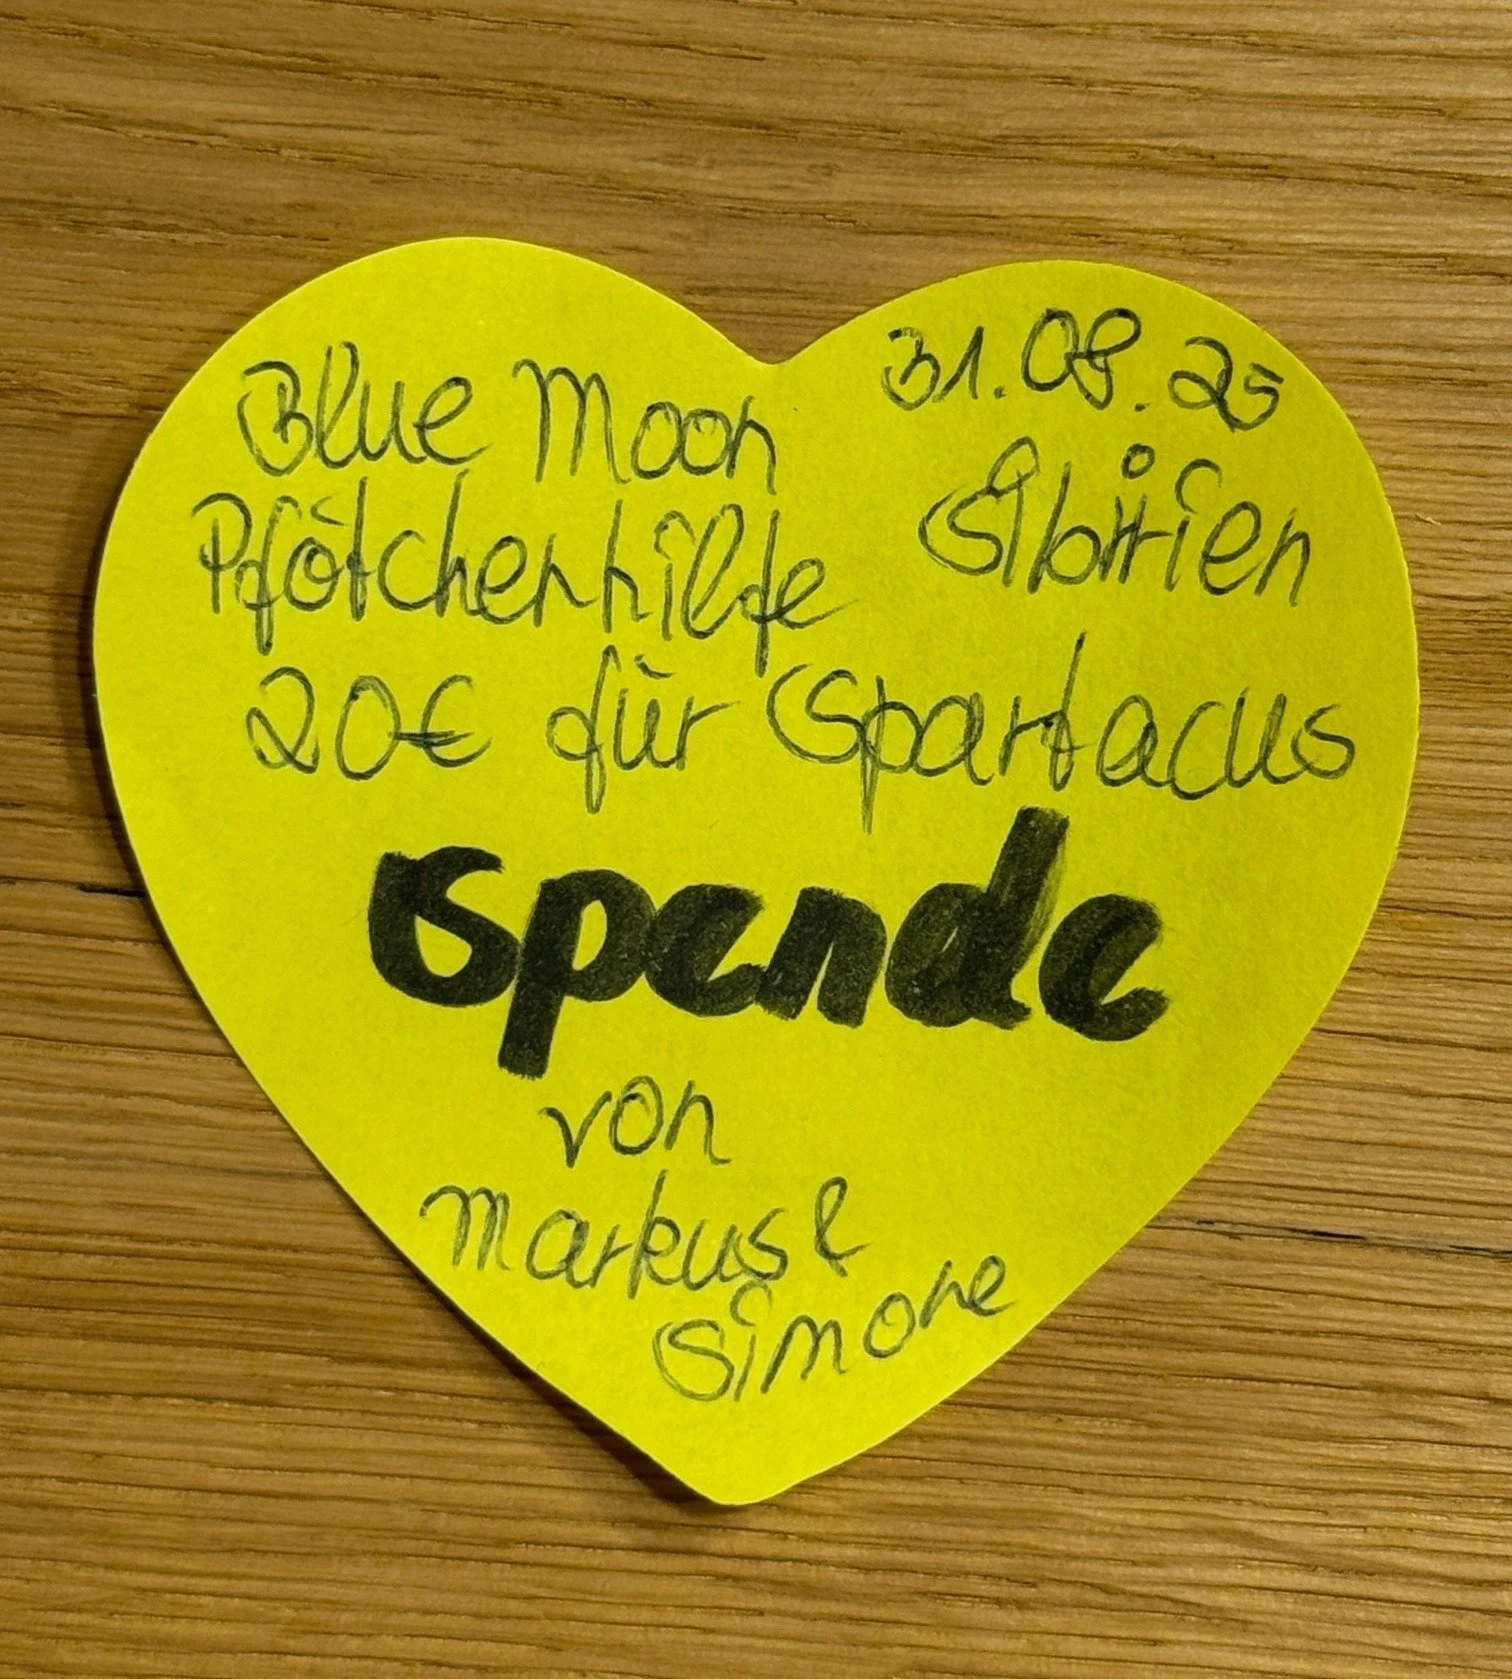 Blue Moon
Pfötchenhilfe
31.08.25
Sibirien
20€ für Spartacus
Spende
von
Markus &
Simone